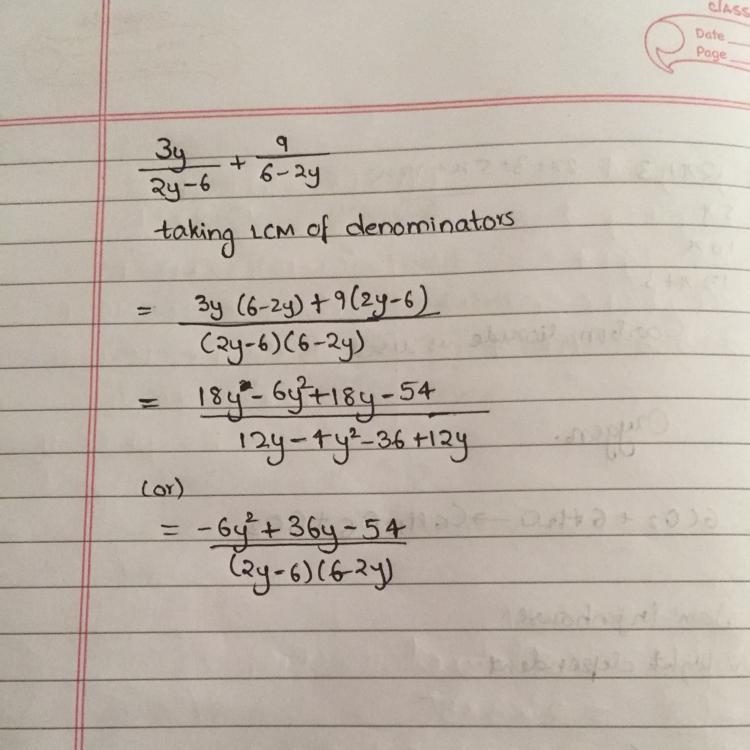 CLASS
Date
Page
3y/2y-6 + 9/6-2y
taking LCM of denominators
= 3y (6-2y)+9(2y-6)/(2y-6)(6-2y)
= 18y - 6y²+18y-54/12y-4y²-36+12y
(or)
= -6y²+36y-54/(2y-6)(6-2y)